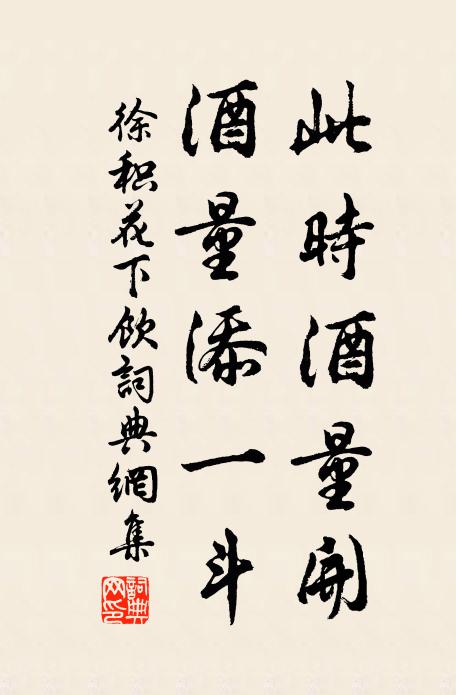 此時酒量開
酒量添一斗
徐积花下飲詞典網集
詞典
网印